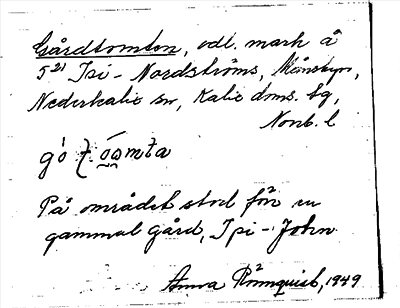 Gårdtomten, odl. mark å
5²¹ Ipi-Nordströms, Månsbyn,
Nederkalix sn, Kalix doms. tg,
Norrb. l
På området stod förr en
gammal gård, Ipi-John
Anna Rönnquist, 1949